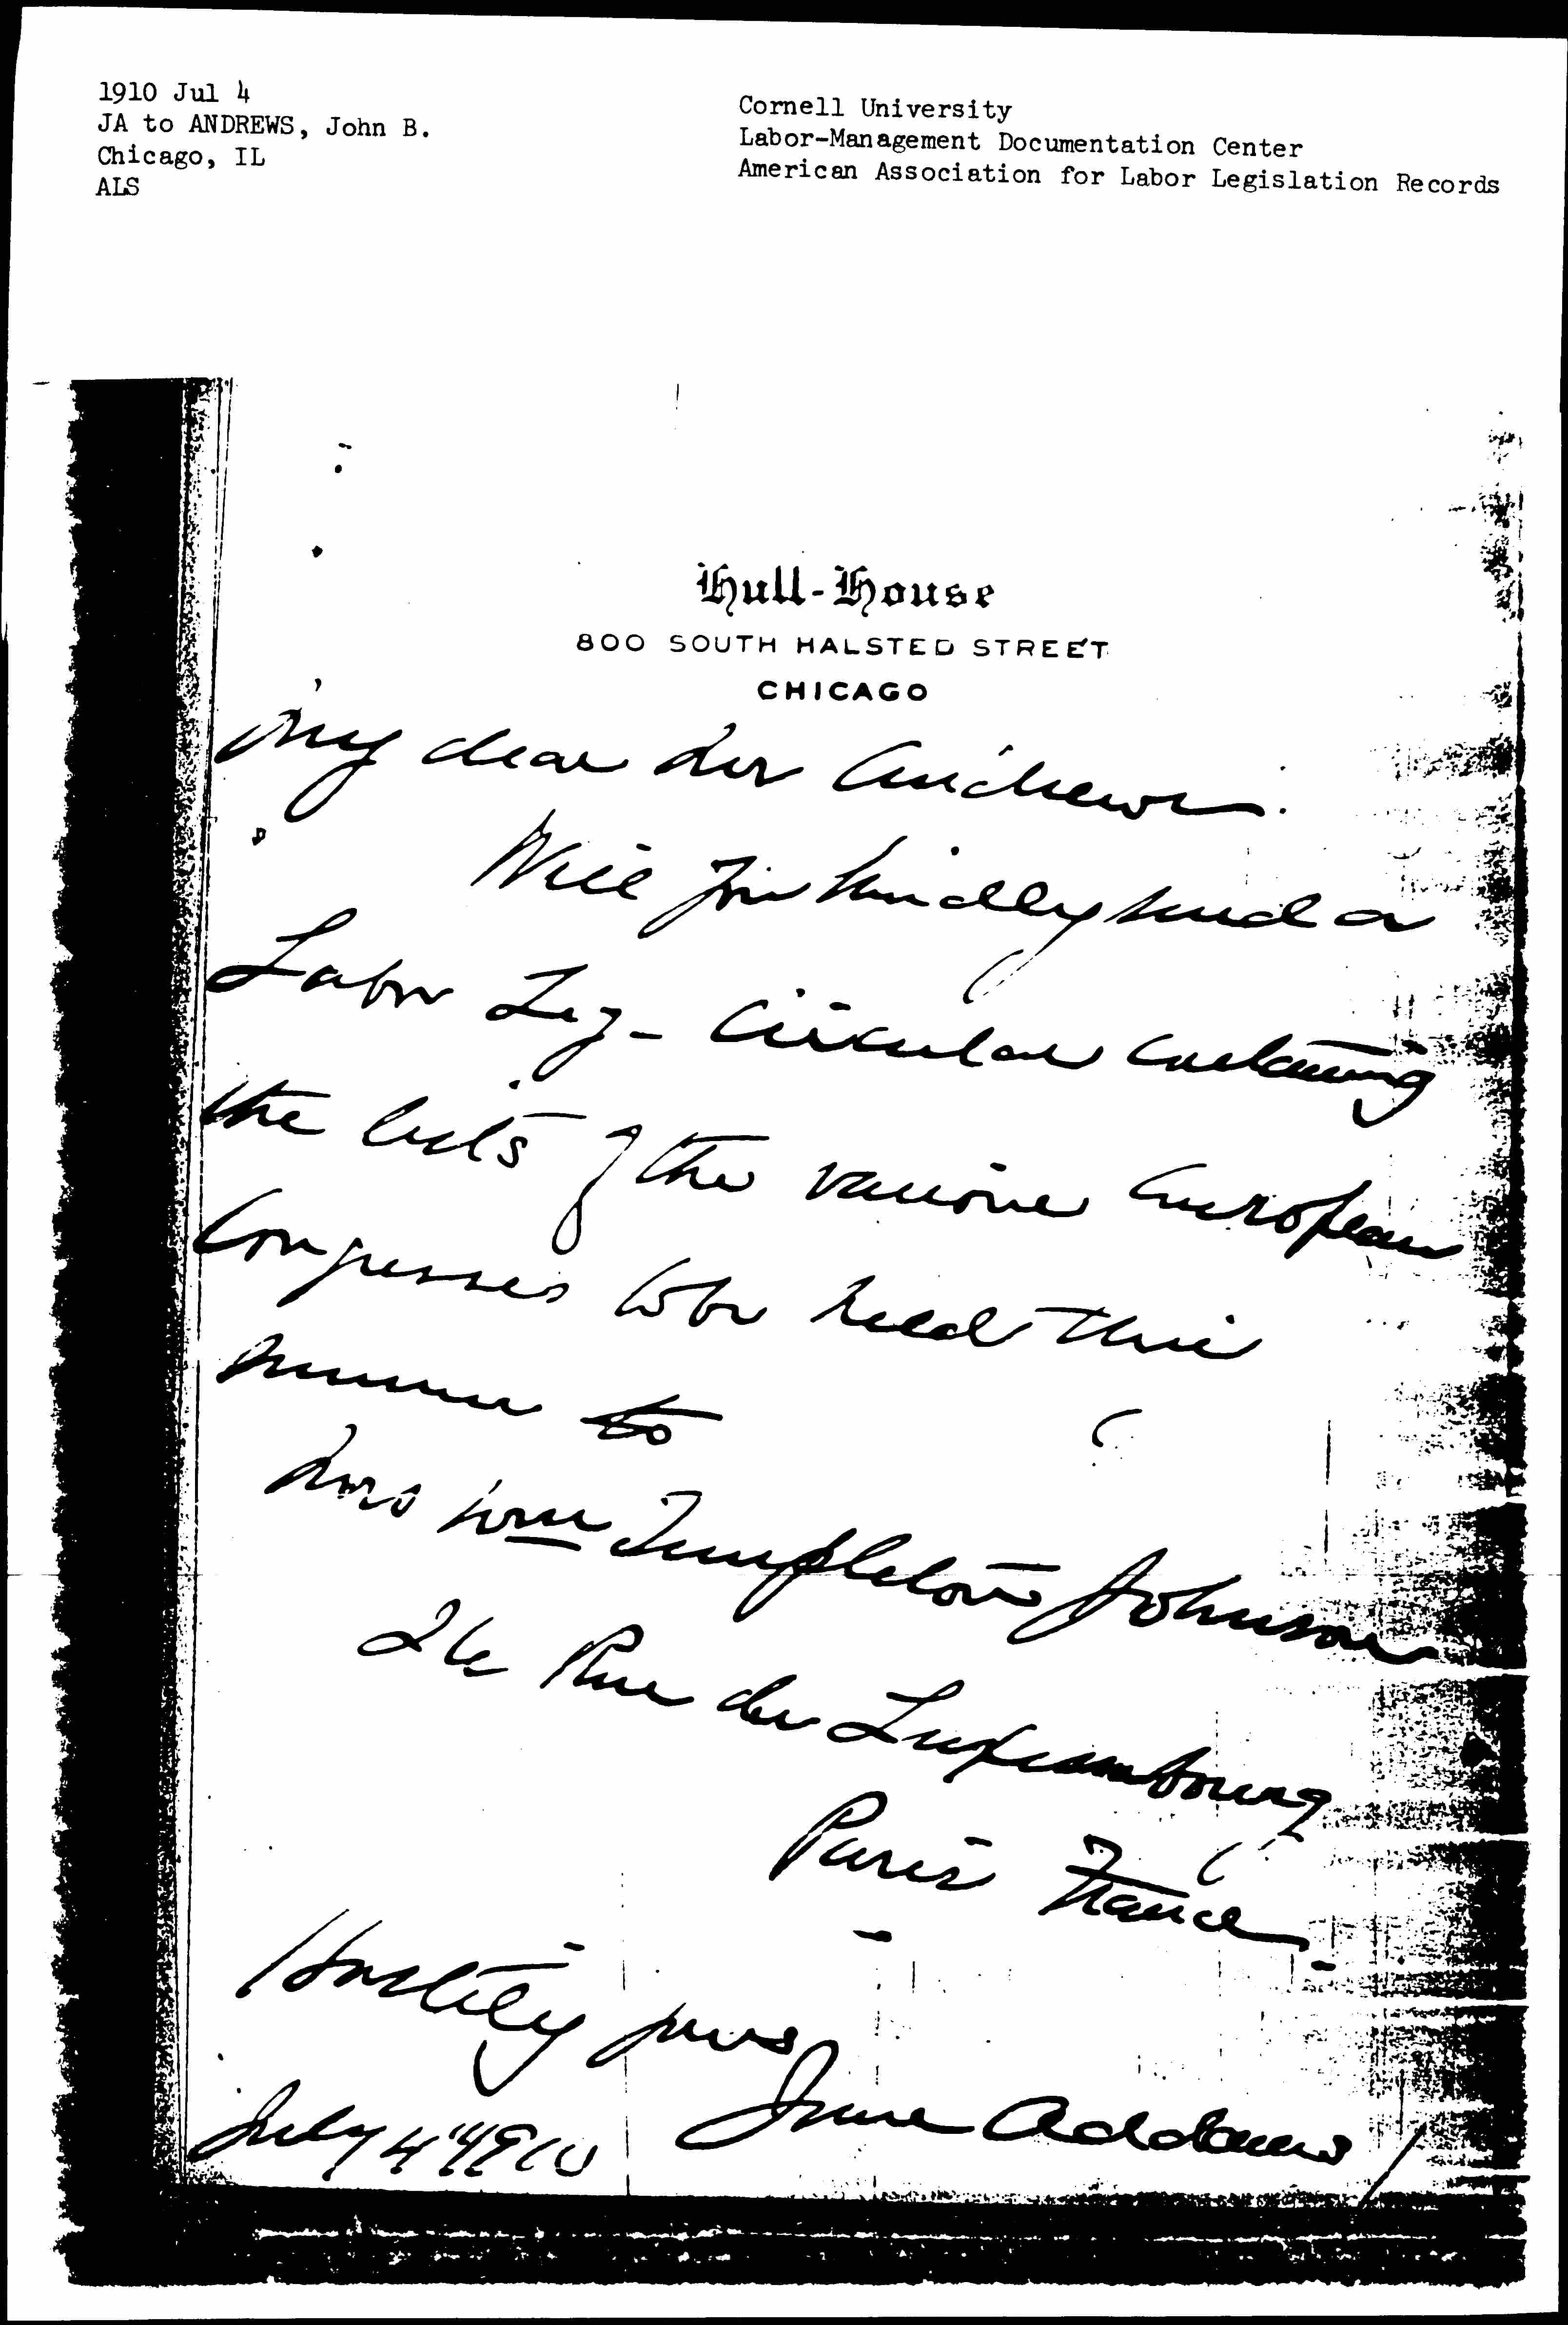 1910 Jul 4
JA to ANDREWS, John B.
Chicago, IL
ALS
Cornell University
Labor-Management Documentation Center
American Association for Labor Legislation Records
Hull-House
800 SOUTH HALSTED STREET
CHICAGO
My dear Mr Andrews.
Will you kindly send a
Labor Leg- Circular containing
the lists of the various European
Congresses to be held this
summer to
Mrs Wm Templeton Johnson
26 Rue de Luxembourg
Paris France.
Heartily yours
Jane Addams
July 4" 1910